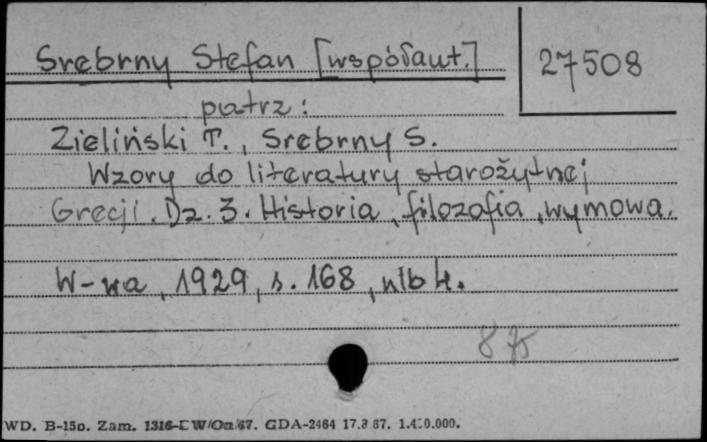 Srebrny Stefan [współaut.]
27508
patrz:
Zieliński T., Srebrny S.
Wzory do literatury starožytnej
Grecji. Dz. 3. Historia, filozofia, wymowa.
W-wa, 1929, s. 168, nlb 4.
8
WD. B-15o. Zam. 1316-E W/Om/67. GDA-2464 17.3.67. 1.450.000.